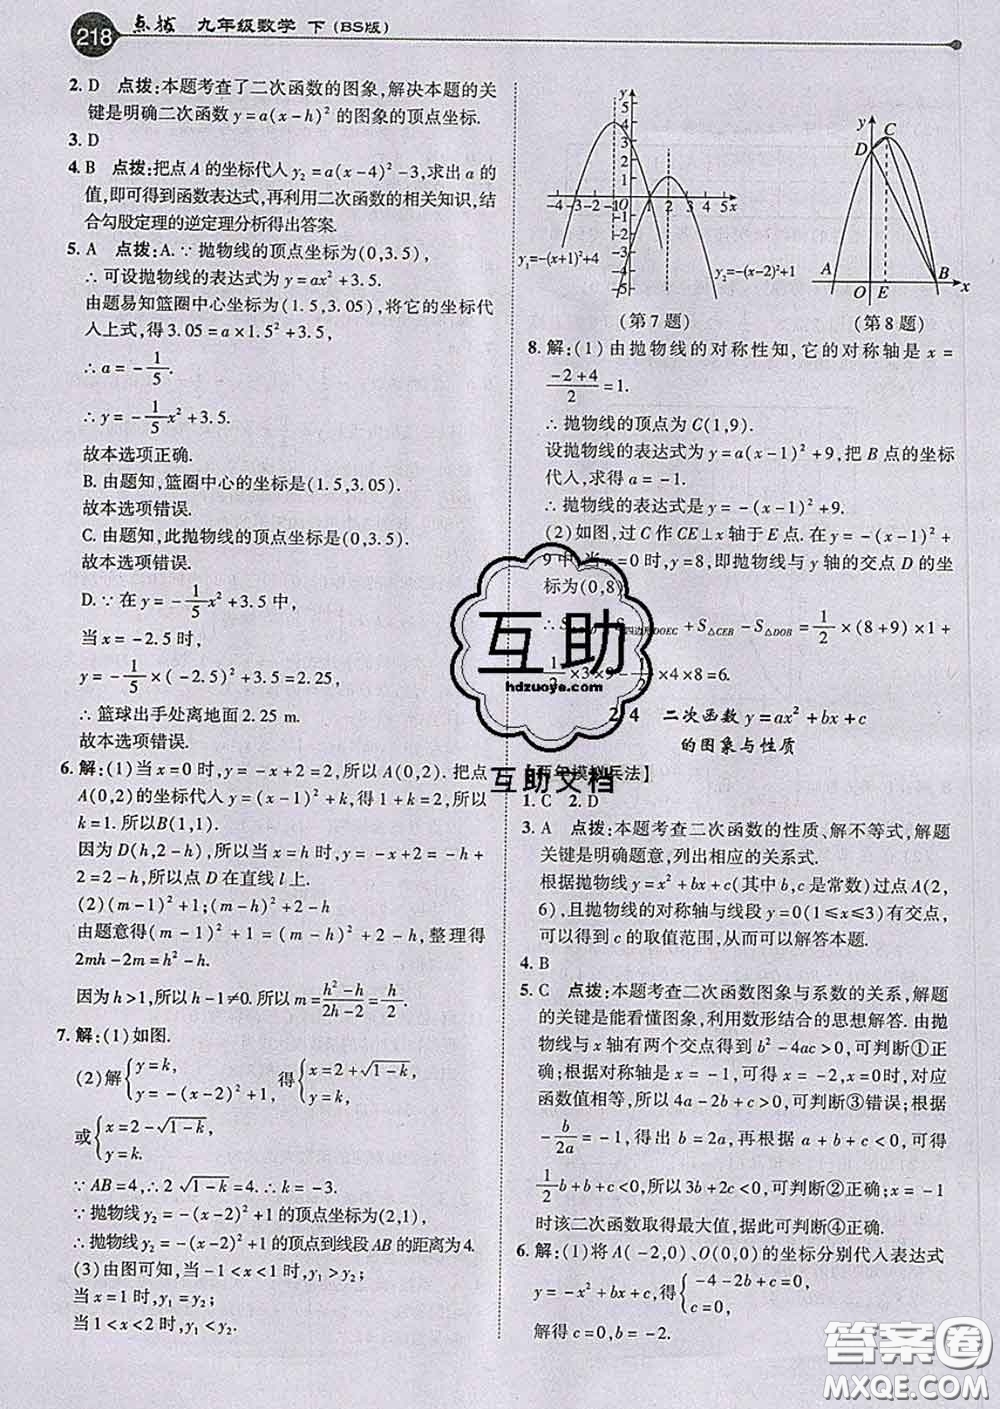 218 点拨 九年级数学 下(BS版)
2. D 点拨:本题考查了二次函数的图象,解决本题的关
键是明确二次函数 y=a(x-h)² 的图象的顶点坐标.
3. D
4. B 点拨:把点 A 的坐标代人 y₂=a(x-4)²-3,求出 a 的
值,即可得到函数表达式,再利用二次函数的相关知识,结
合勾股定理的逆定理分析得出答案.
5. A 点拨:A.∵抛物线的顶点坐标为(0,3.5),
∴可设抛物线的表达式为 y=ax²+3.5.
由题易知篮圈中心坐标为(1.5,3.05),将它的坐标代
人上式,得 3.05=a×1.5²+3.5,
∴a=-1/5.
∴y=-1/5x²+3.5.
故本选项正确.
B. 由题知,篮圈中心的坐标是(1.5,3.05).
故本选项错误.
C. 由题知,此抛物线的顶点坐标是(0,3.5).
故本选项错误.
D.∵在 y=-1/5x²+3.5中,
当 x=-2.5时,
y=-1/5×(-2.5)²+3.5=2.25,
∴篮球出手处离地面 2.25 m.
故本选项错误.
6. 解:(1)当 x=0时,y=-x+2=2,所以A(0,2). 把点
A(0,2)的坐标代人 y=(x-1)²+k,得 1+k=2,所以
k=1. 所以B(1,1).
因为 D(h,2-h),所以当 x=h 时,y=-x+2=-h+
2=2-h,所以点 D 在直线 l 上.
(2)(m-1)²+1;(m-h)²+2-h
由题意得(m-1)²+1=(m-h)²+2-h,整理得
2mh-2m=h²-h.
因为h>1,所以 h-1≠0. 所以 m=(h²-h)/(2h-2)=h/2.
7. 解:(1)如图.
(2)解{y=k, y=-(x-2)²+1, 得{x=2+√(1-k), y=k,
或{x=2-√(1-k), y=k.
∵AB=4,∴2√(1-k)=4. ∴k=-3.
∵抛物线 y₂=-(x-2)²+1的顶点坐标为(2,1),
∴抛物线y₂=-(x-2)²+1的顶点到线段AB的距离为4.
(3)由图可知,当-1<x<1时,y₁>y₂;
当 x=1时,y₁=y₂;
当 1<x<2时,y₁<y₂.
y
5
4
3
2
1
-4 -3 -2 -1 O 1 2 3 4 5 x
-1
-2
-3
-4
-5
y₁=-(x+1)²+4
y₂=-(x-2)²+1
(第7题)
y C
D
A O E B x
(第8题)
8. 解:(1)由抛物线的对称性知,它的对称轴是 x=
(-2+4)/2=1.
∴抛物线的顶点为 C(1,9).
设抛物线的表达式为 y=a(x-1)²+9,把 B 点的坐标
代人,求得 a=-1.
∴抛物线的表达式是 y=-(x-1)²+9.
(2)如图,过 C 作 CE⊥x 轴于 E 点. 在 y=-(x-1)²+
9中,当 x=0时,y=8,即抛物线与 y 轴的交点 D 的坐
标为(0,8).
∴S 四边形DOEC+S△CEB-S△DOB=1/2×(8+9)×1+
1/2×3×9-1/2×4×8=6.
2.4 二次函数 y=ax²+bx+c
的图象与性质
【两年模拟兵法】
1. C 2. D
3. A 点拨:本题考查二次函数的性质、解不等式,解题
关键是明确题意,列出相应的关系式.
根据抛物线 y=x²+bx+c(其中 b,c 是常数)过点 A(2,
6),且抛物线的对称轴与线段 y=0(1≤x≤3)有交点,
可以得到 c 的取值范围,从而可以解答本题.
4. B
5. C 点拨:本题考查二次函数图象与系数的关系,解题
的关键是能看懂图象,利用数形结合的思想解答. 由抛
物线与 x 轴有两个交点得到 b²-4ac>0,可判断①正
确;根据对称轴是 x=-1,可得 x=-2,0 时,y 的值相等,对应
函数值相等,所以 4a-2b+c>0,可判断③错误;根据
-b/2a=-1,得出 b=2a,再根据 a+b+c<0,可得
1/2b+b+c<0,所以3b+2c<0,可判断②正确;x=-1
时该二次函数取得最大值,据此可判断④正确.
6. 解:(1)将 A(-2,0)、O(0,0)的坐标分别代人表达式
y=-x²+bx+c,得{-4-2b+c=0, c=0,
解得 c=0,b=-2.
互助
hdzuoye.com
互助文档
答案圈
MXQE.COM